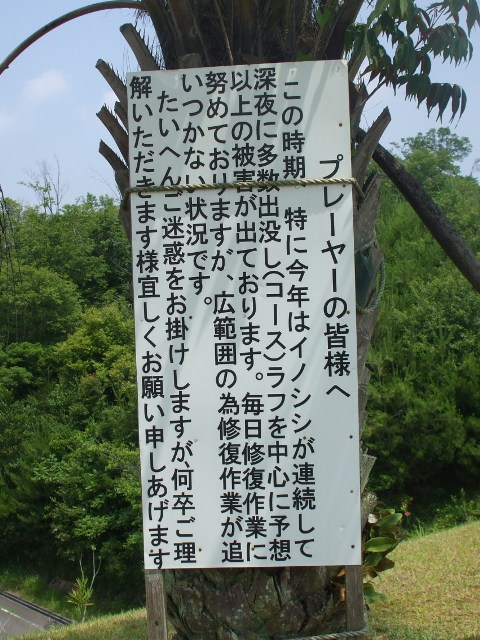 プレーヤーの皆様へ
この時期、特に今年はイノシシが連続して
深夜に多数出没し(コース)ラフを中心に予想
以上の被害が出ております。毎日修復作業に
努めておりますが、広範囲の為修復作業が追
いつかない状況です。
たいへんご迷惑をお掛けしますが、何卒ご理
解いただきます様宜しくお願い申しあげます